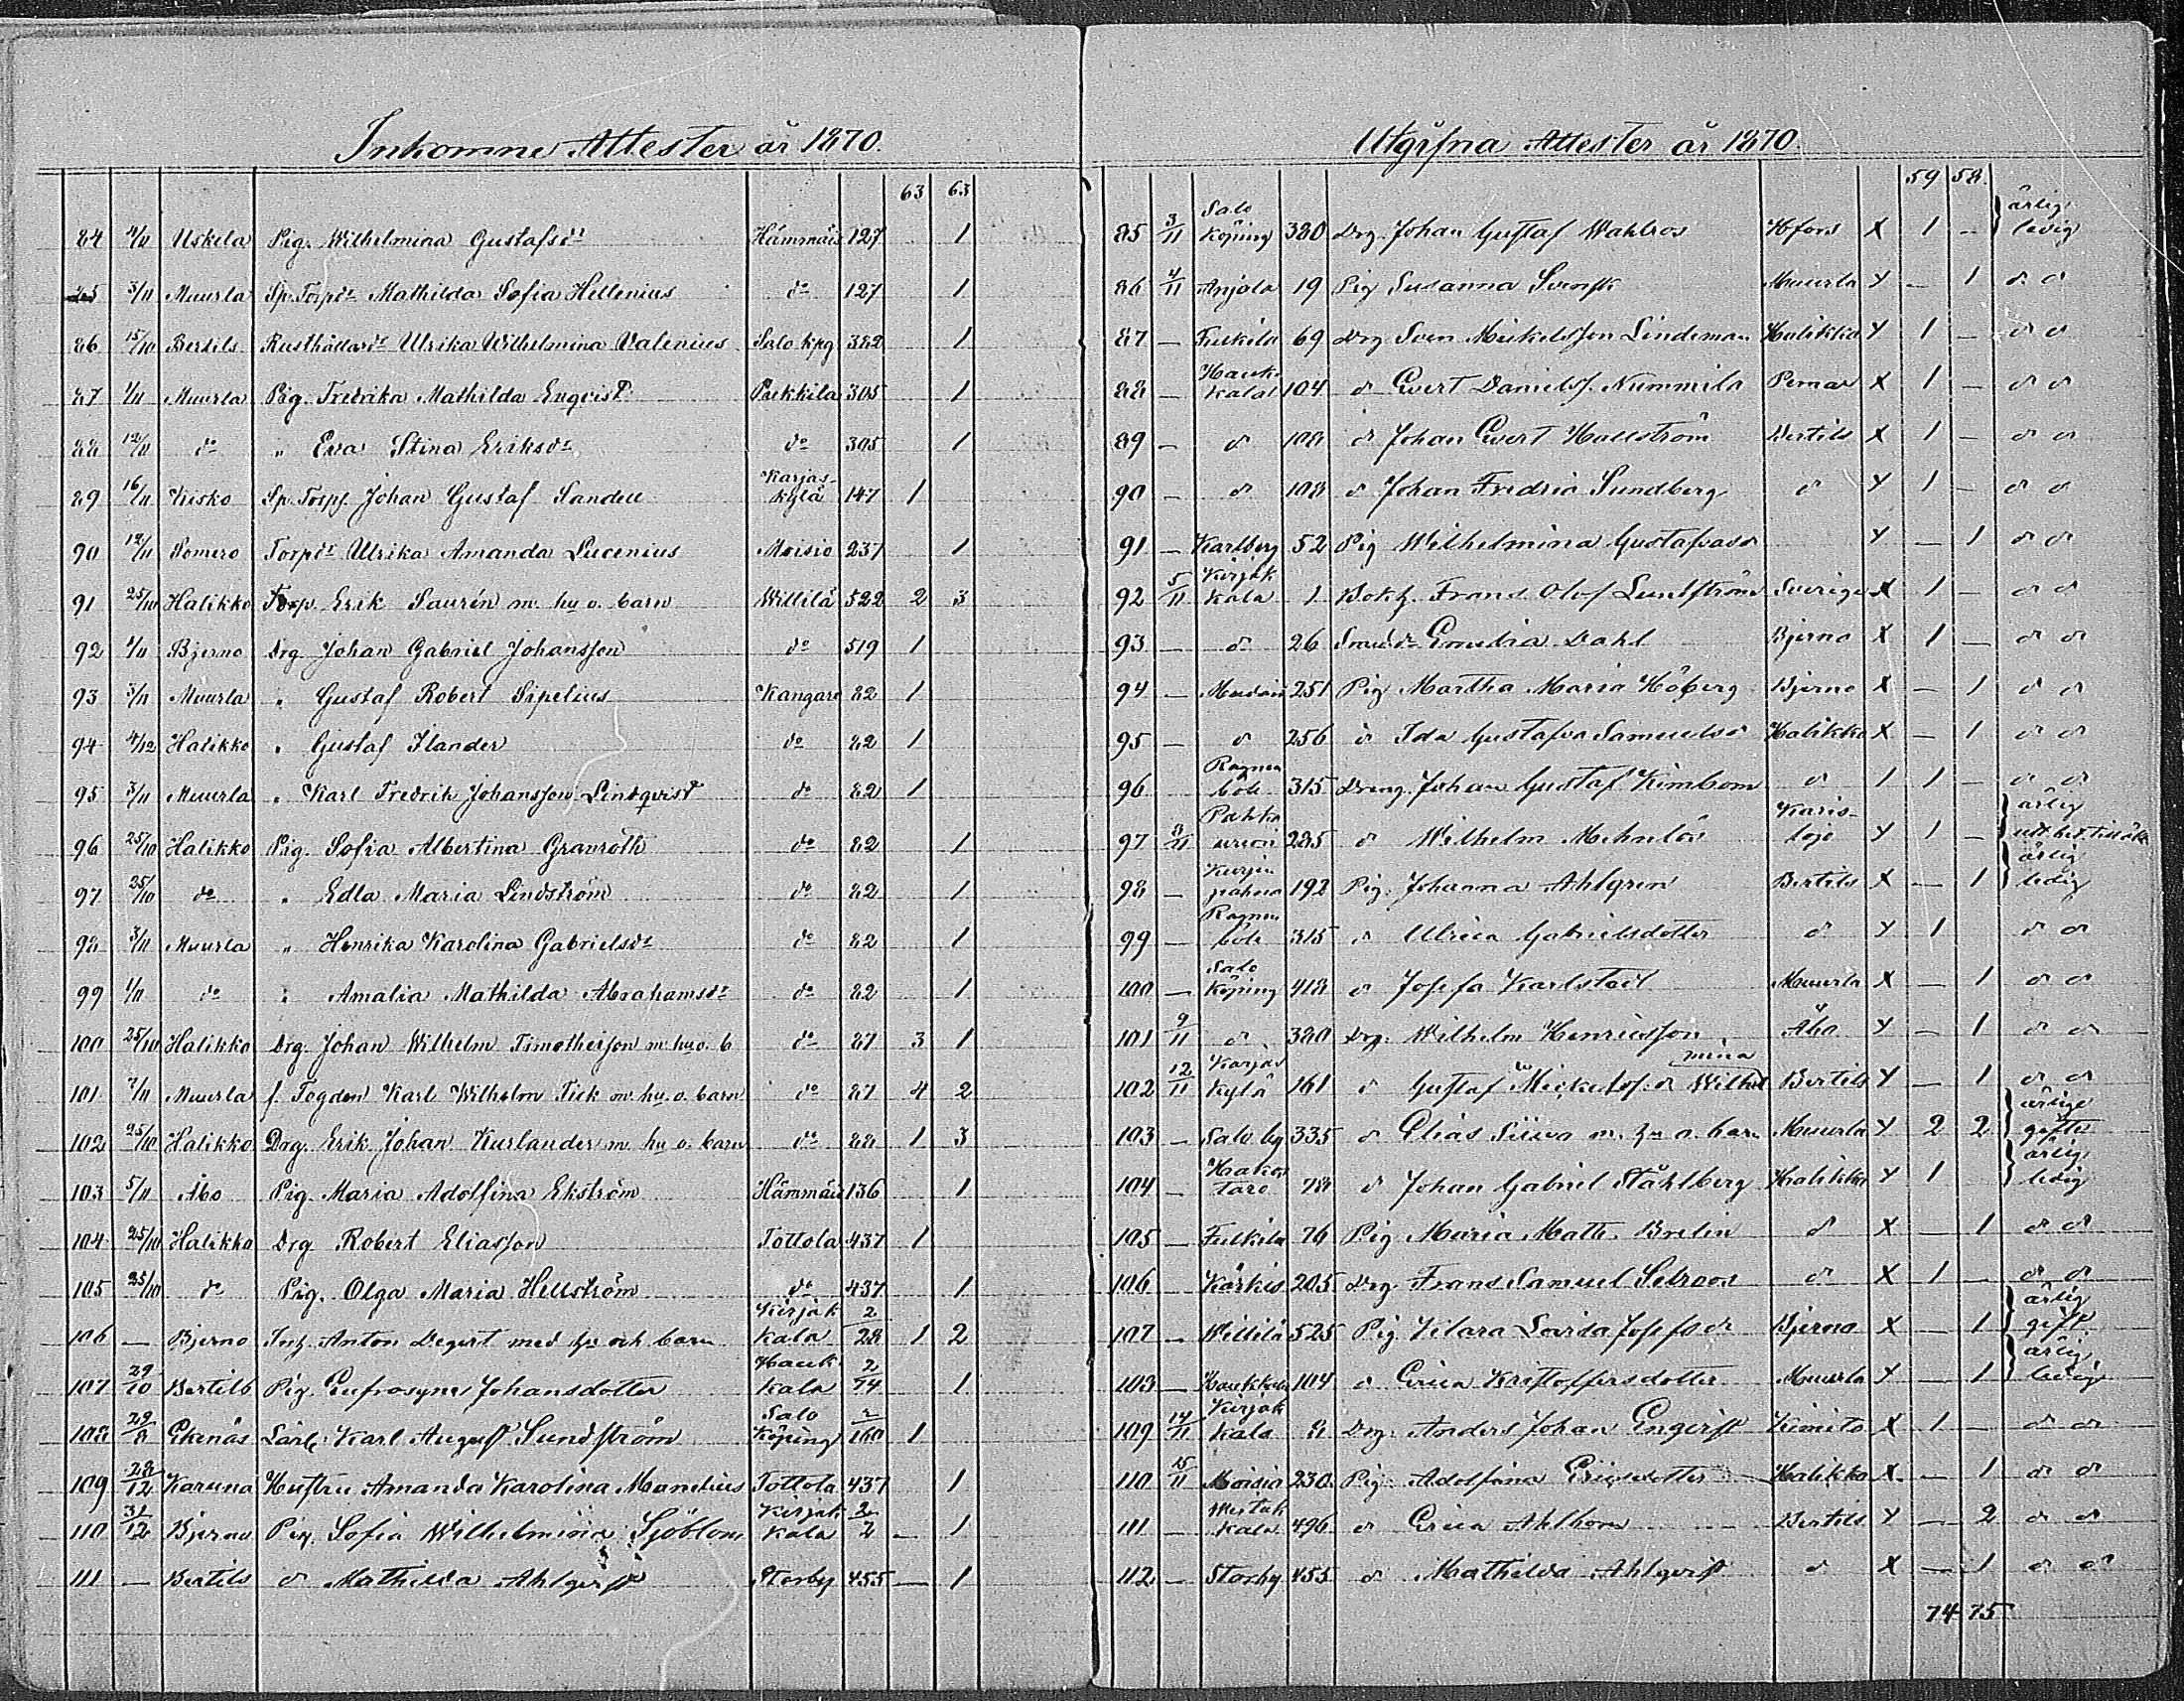 Inkomne Attester år 1870.
63 63
84 4/11 Uskela Pig. Wilhelmina Gustafsdr Hämmäis 127 1
85 3/11 Muurla Sp. Torpdr Mathilda Sofia Hellenius do 127 1
86 15/10 Bertils Rusthållardr Ulrika Wilhelmina Valenius Salo kpg 382 1
87 1/11 Muurla Pig. Fredrika Mathilda Enqvist Pukkila 305 1
88 12/11 do " Eva Stina Eriksdr do 305 1
89 16/11 Kisko Sp. Torps. Johan Gustaf Sandell Karjaskylä 147 1
90 12/11 Somero Torpdr Ulrika Amanda Lucenius Moisio 237 1
91 25/10 Halikko Torp. Erik Saurén m. hu o. barn Willilä 522 2 3
92 1/11 Bjerno Drg Johan Gabriel Johansson do 519 1
93 3/11 Muurla " Gustaf Robert Sipelius Kangare 82 1
94 4/12 Halikko " Gustaf Ilander do 82 1
95 3/11 Muurla " Karl Fredrik Johansson Lindqvist do 82 1
96 25/10 Halikko Pig. Sofia Albertina Granroth do 82 1
97 25/10 do " Edla Maria Lindström do 82 1
98 3/11 Muurla " Henrika Karolina Gabrielsdr do 82 1
99 1/11 do " Amalia Mathilda Abrahamsdr do 82 1
100 25/10 Halikko Drg. Johan Wilhelm Timotheisson m hu o. b do 87 3 1
101 7/11 Muurla f. Fogden Karl Wilhelm Fick m. hu o. barn do 87 4 2
102 25/10 Halikko Drg. Erik Johan Kurlander m hu o. barn do 88 1 3
103 5/11 Åbo Pig. Maria Adolfina Ekström Hämmäis 136 1
104 25/10 Halikko Drg Robert Eliasson Tottola 437 1
105 25/10 do Pig. Olga Maria Hellström do 437 1
106 — Bjerno Inh. Anton Degert med hu och barn Kirjakkala 2/28 1 2
107 29/10 Bertils Pig. Eufrosyne Johansdotter Haukkala 2/74 1
108 29/8 Ekenäs Lärl. Karl August Sundström Salo Köping 2/160 1
109 28/12 Karuna Hustru Amanda Karolina Manelius Tottola 437 1
110 31/12 Bjerno Pig. Sofia Wilhelmina Sjöblom Kirjakkala 2/2 — 1
111 — Bertils d Mathilda Ahlqvist Storby 455 — 1
Utgifna Attester år 1870.
59 58.
85 3/11 Salo Köping 380 Drg. Johan Gustaf Wahlros Hfors X 1 — ärlig ledig
86 4/11 Anjala 19 Pig Susanna Svensk Muurla Y — 1 d. d
87 — Fulkila 69 Drg Sven Mickelsson Lindeman Halikko Y 1 — d d
88 — Haukkala 104 d Evert Daniels. Nummila Pemar X 1 — d d
89 — d 108 d Johan Evert Hallström Bertils X 1 — d d
90 — d 108 d Johan Fredric Sundberg d Y 1 — d d
91 — Karlberg 52 Pig Wilhelmina Gustafva dr Y — 1 d d
92 5/11 Kirjakkala 1 Bokh. Frans Olof Lundström Sverige X 1 — d d
93 — d 26 Smeddr Emilia Dahl Bjerno X 1 — d d
94 — 251 Pig Martha Maria Högberg Bjerno X — 1 d d
95 — d 256 d Ida Gustafva Samuelsdr Halikko X — 1 d d
96 Ragnaböle 315 Dreng. Johan Gustaf Kimbom d 1 1 — d d
97 8/11 285 d Wilhelm Karislojo Y 1 — ärlig
98 — 192 Pig. Johanna Ahlgren Bertils X — 1 ärlig ledig
99 — Ragnaböle 315 d Ulrica Gabrielsdotter d Y 1 d d
100 — Salo Köping 418 d Josefa Karlstedt Muurla X — 1 d d
101 9/11 d 380 Drg. Wilhelm Henricsson Åbo Y — 1 d d
102 12/11 Karjaskylä 161 d Gustaf Mickelsf. dr Wilhelmina Bertils Y — 1 d d
103 — Salo by 335 d Elias Siiwo m. hu o. barn Muurla Y 2 2 ärlige gifte
104 — Hakostaro 78 d Johan Gabriel Ståhlberg Halikko Y 1 ärlig ledig
105 — Fulkila 76 Pig Maria Math. Brelin d X — 1 d d
106 Kärkis 205 Drg. Frans Samuel Selroos d X 1 — d d
107 — Willilä 525 Pig. Klara Lovisa Josefsdr Bjerno X — 1 ärlig gift
108 — Haukkala 104 d Erica Kristoffersdotter Muurla Y — 1 ärlig ledig
109 14/11 Kirjakkala 8 Drg. Anders Johan Engvist Kimito X 1 — d d
110 15/11 Moisio 230 Pig. Adolfina Ericsdotter Halikko X — 1 d d
111 — 496 d Erica Ahlbom Bertils Y — 2 d d
112 — Storby 455 d Mathilda Ahlqvist d X — 1 d d
74 75